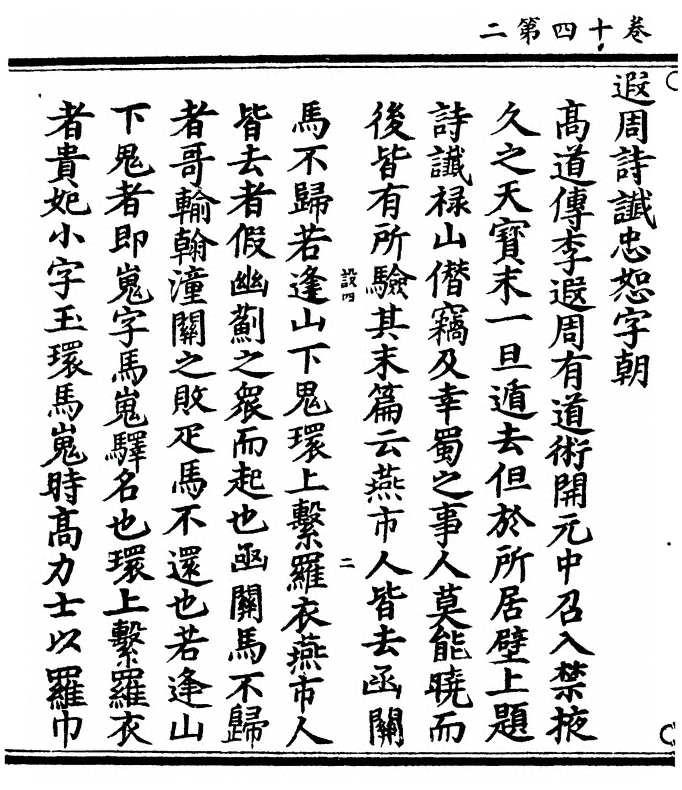 卷十四第二
遐周詩讖忠恕字朝
高道傳李遐周有道術開元中召入禁掖
久之天寶末一旦遁去但於所居壁上題
詩讖禄山僭竊及幸蜀之事人莫能曉而
後皆有所驗其末篇云燕市人皆去函關
設四 二
馬不歸若逢山下鬼環上繫羅衣燕市人
皆去者假幽薊之衆而起也函關馬不歸
者哥輸翰潼關之敗疋馬不還也若逢山
下鬼者即嵬字馬嵬驛名也環上繫羅衣
者貴妃小字玉環馬嵬時高力士以羅巾